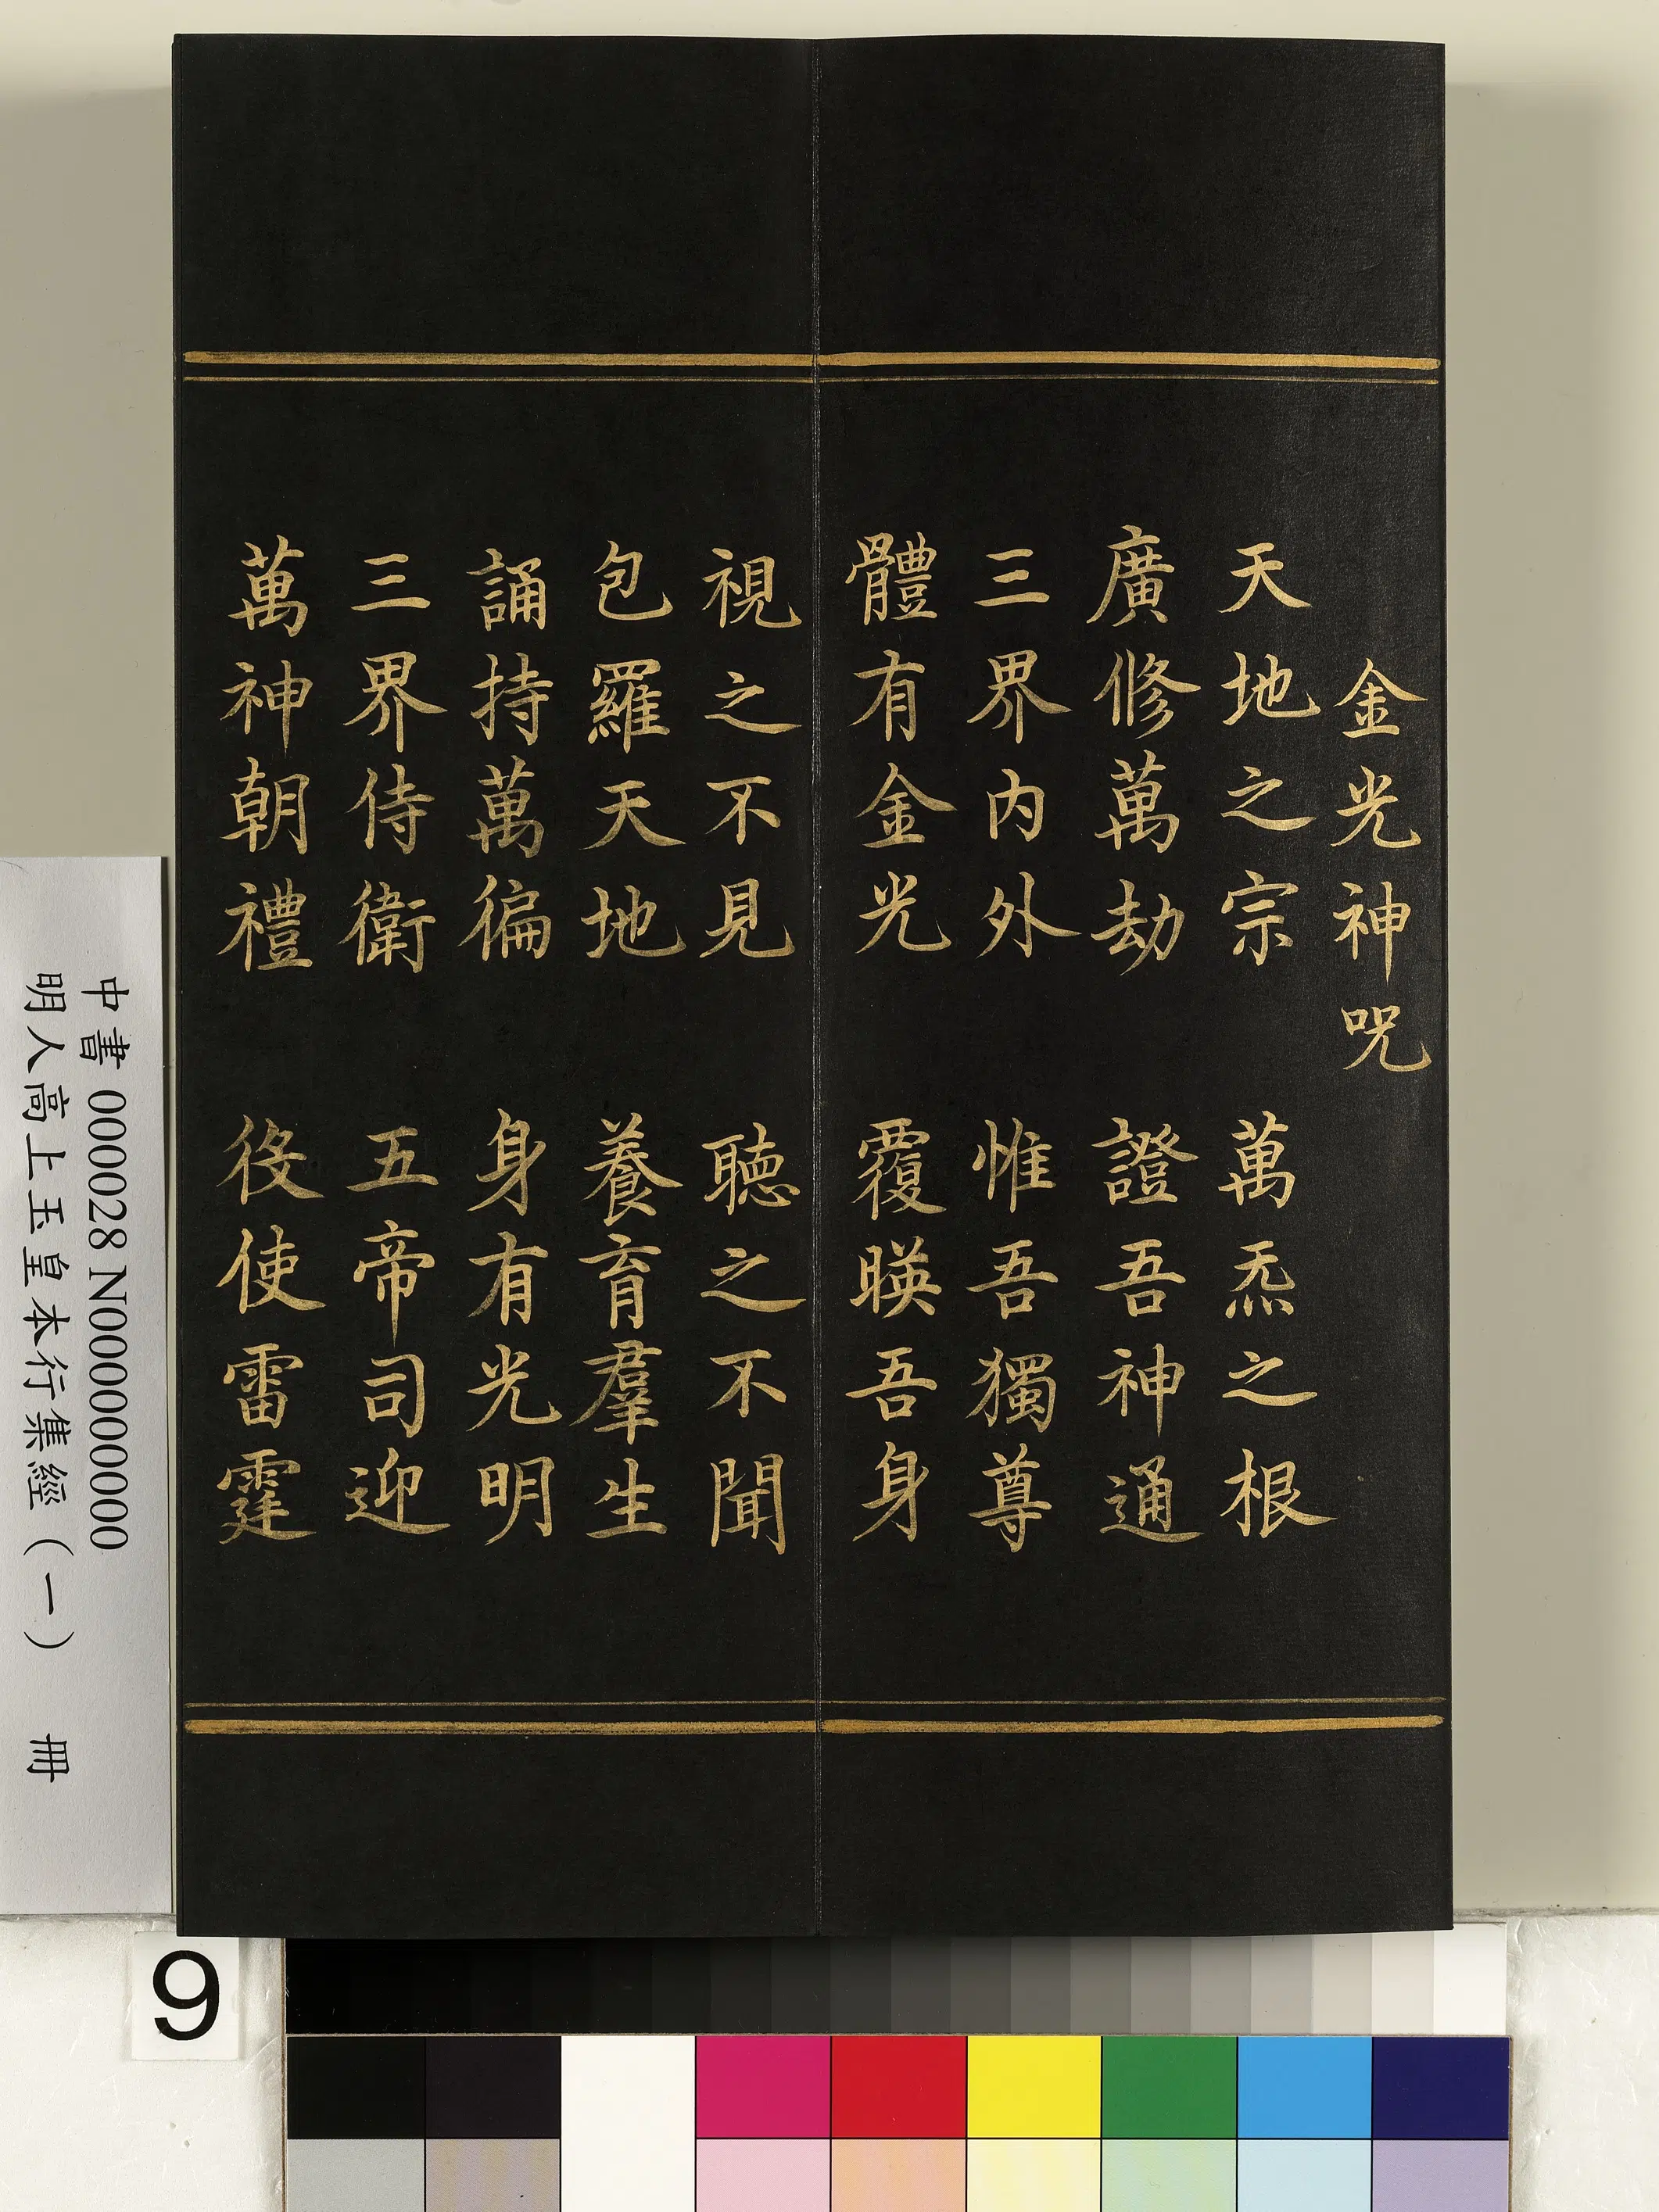 金光神咒
天地之宗　萬炁之根
廣修萬劫　證吾神通
三界內外　惟吾獨尊
體有金光　覆暎吾身
視之不見　聽之不聞
包羅天地　養育羣生
誦持萬徧　身有光明
三界侍衛　五帝司迎
萬神朝禮　役使雷霆
中書 000028 N000000000
明人高上玉皇本行集經（一）　冊
9